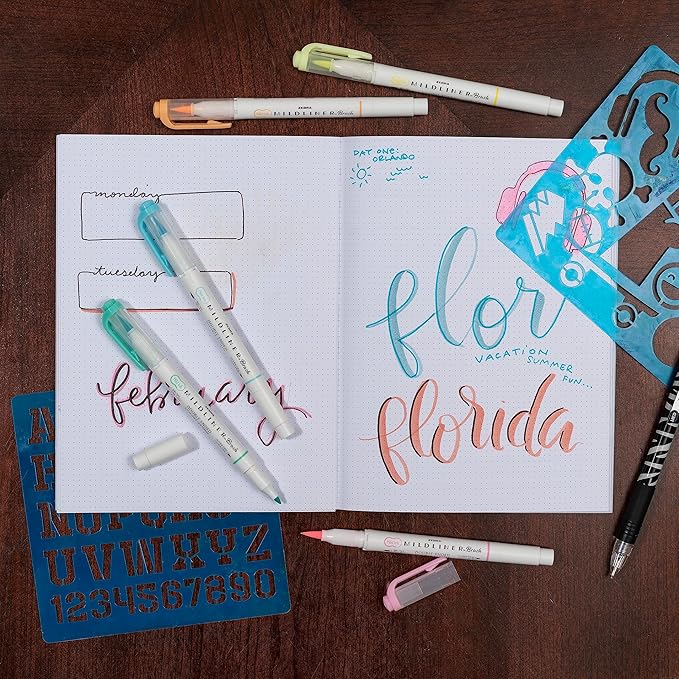 ZEBRA
MILDLINER Brush
ZEBRA
MILDLINER Brush
monday
tuesday
february
MILDLINER Brush
MILDLINER Brush
DAY ONE:
ORLANDO
flor
VACATION
SUMMER
FUN...
florida
ZEBRA
MILDLINER Brush
UVWXYZ
1234567890